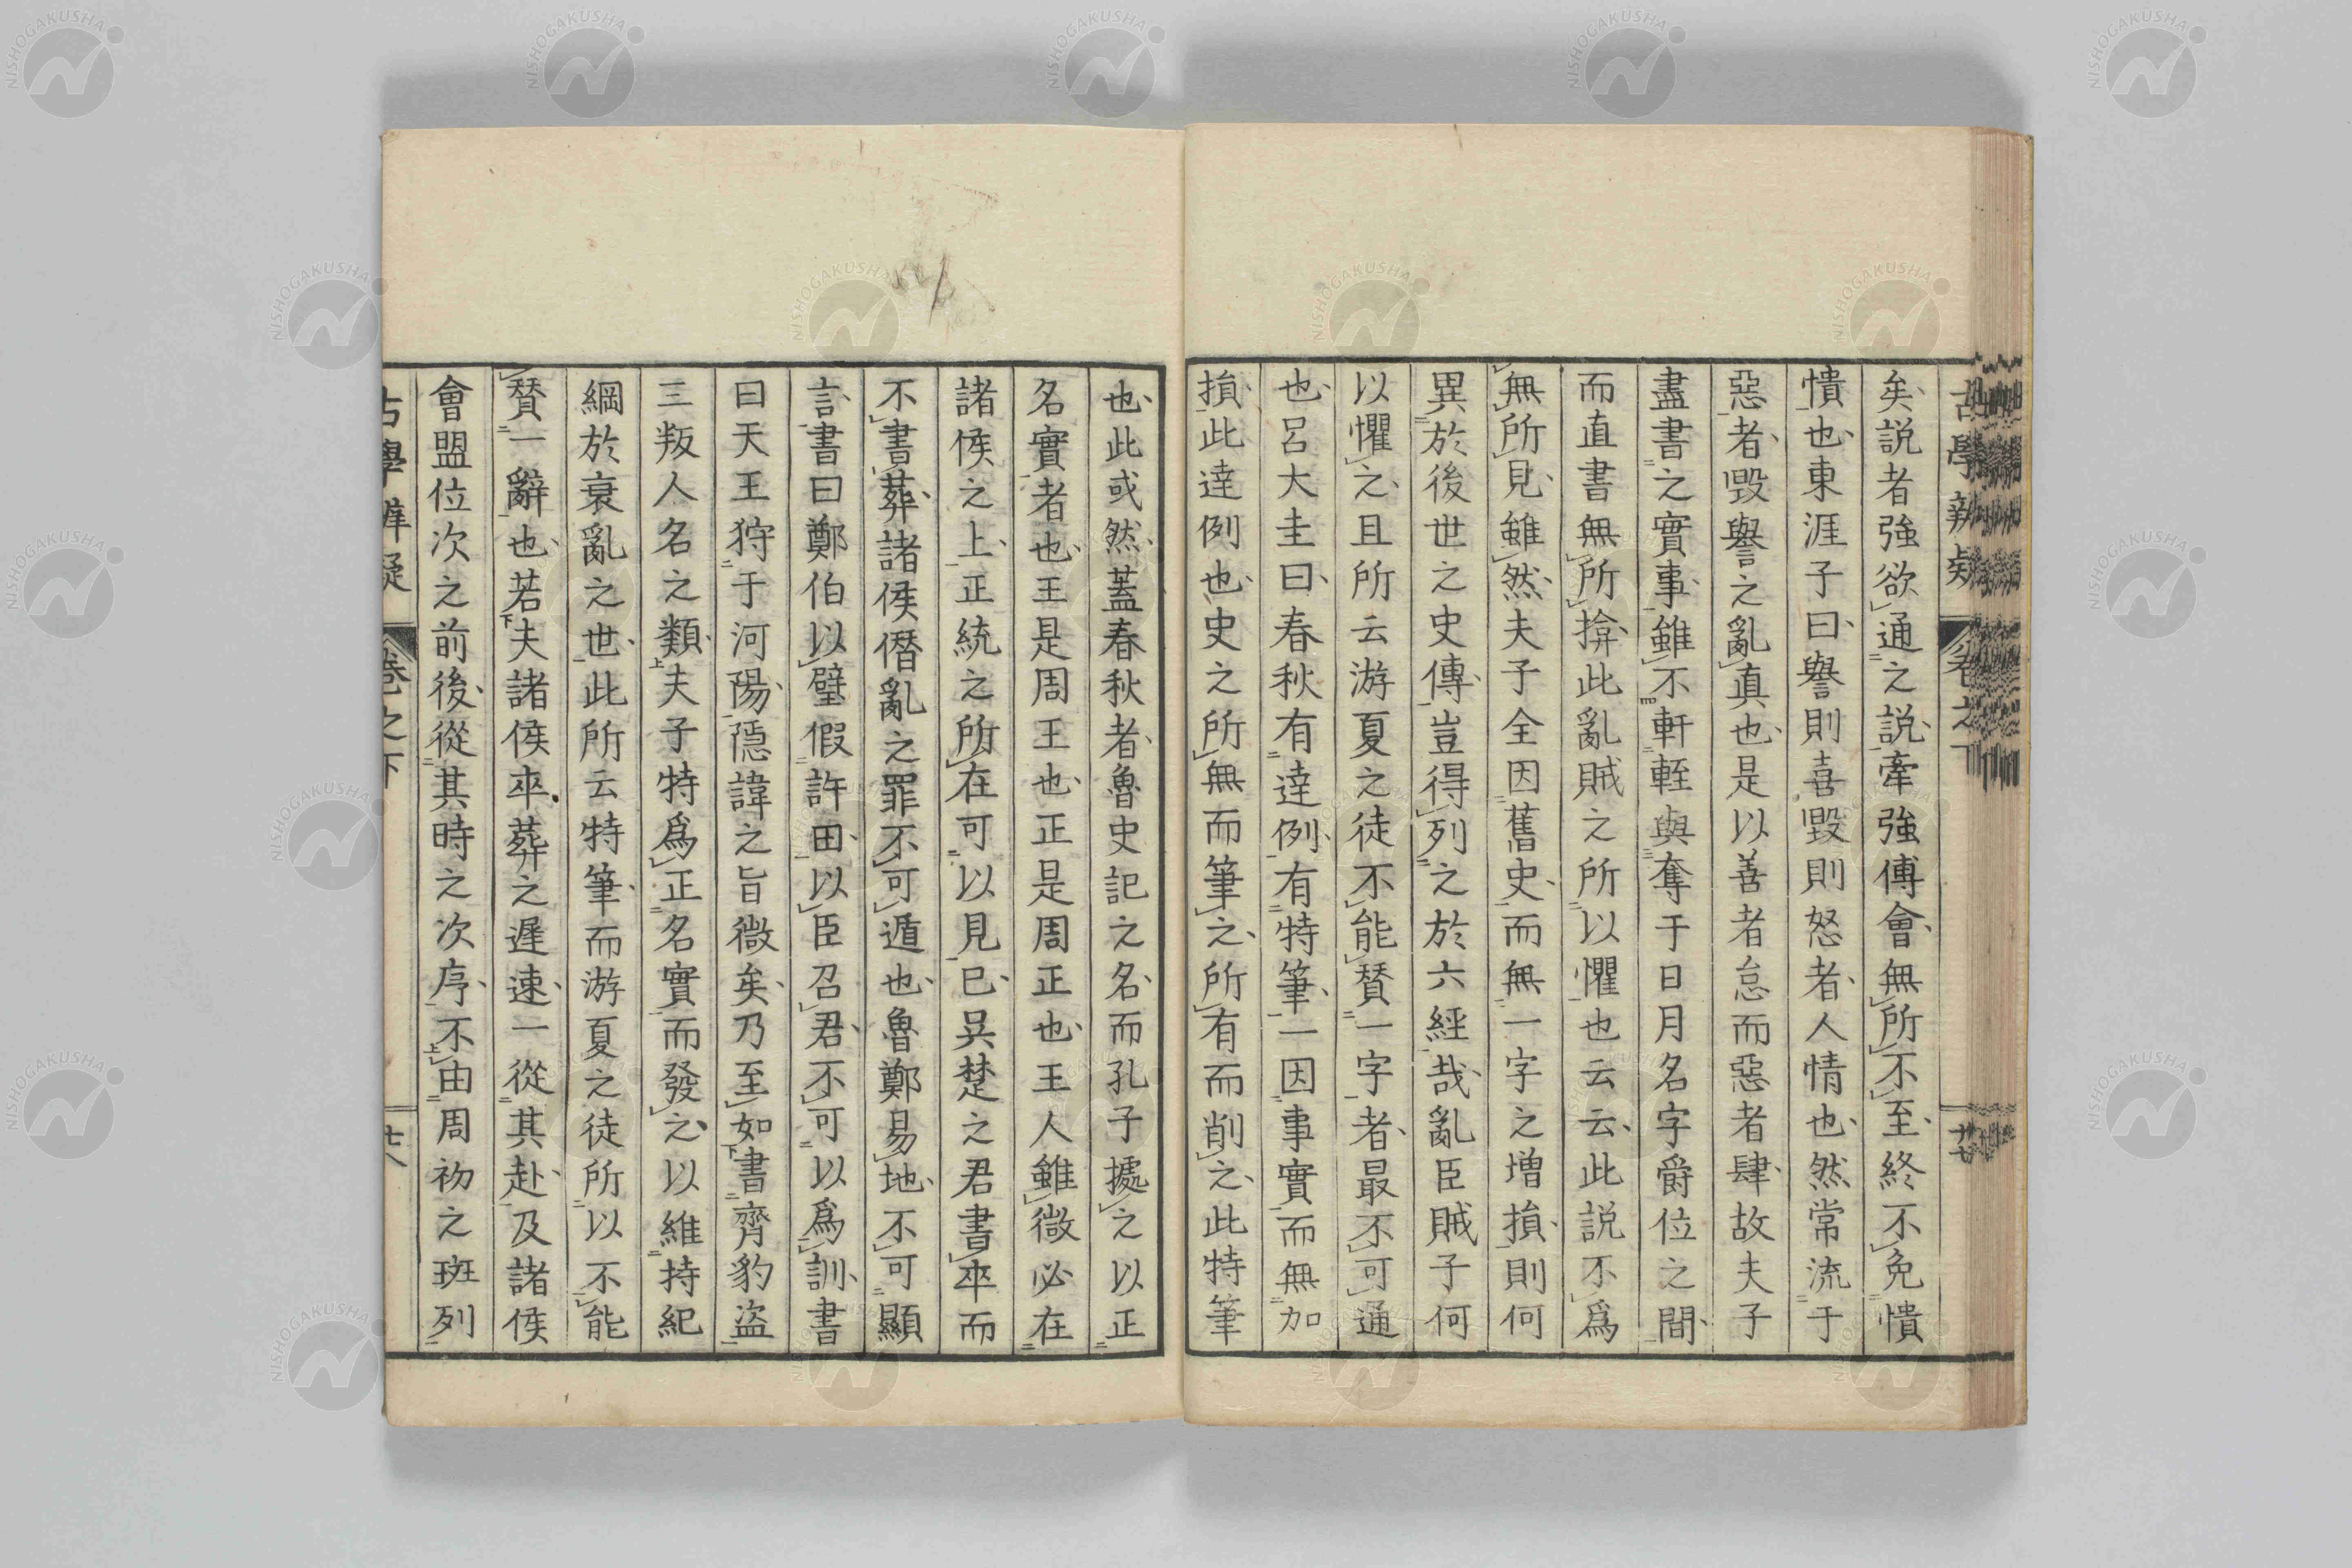 古學辨疑 卷之下 廿七
矣説者強欲通之説牽強傅會無所不至終不免憒
憒也東涯子曰譽則喜毀則怒者人情也然常流于
惡者毀譽之亂真也是以善者怠而惡者肆故夫子
盡書之實事雖不軒輊與奪于日月名字爵位之間
而直書無所揜此亂賊之所以懼也云云此説不爲
無所見雖然夫子全因舊史而無一字之増損則何
異於後世之史傳豈得列之於六經哉亂臣賊子何
以懼之且所云游夏之徒不能賛一字者最不可通
也呂大圭曰春秋有達例有特筆一因事實而無加
損此達例也史之所無而筆之所有而削之此特筆
也此或然蓋春秋者魯史記之名而孔子據之以正
名實者也王是周王也正是周正也王人雖微必在
諸侯之上正統之所在可以見已吳楚之君書卒而
不書葬諸侯僭亂之罪不可遁也魯鄭易地不可顯
言書曰鄭伯以璧假許田以臣召君不可以爲訓書
曰天王狩于河陽隱諱之旨微矣乃至如書齊豹盜
三叛人名之類夫子特爲正名實而發之以維持紀
綱於衰亂之世此所云特筆而游夏之徒所以不能
賛一辭也若夫諸侯卒葬之遲速一從其赴及諸侯
會盟位次之前後從其時之次序不由周初之班列
古學辨疑 卷之下 廿八
NISHOGAKUSHA